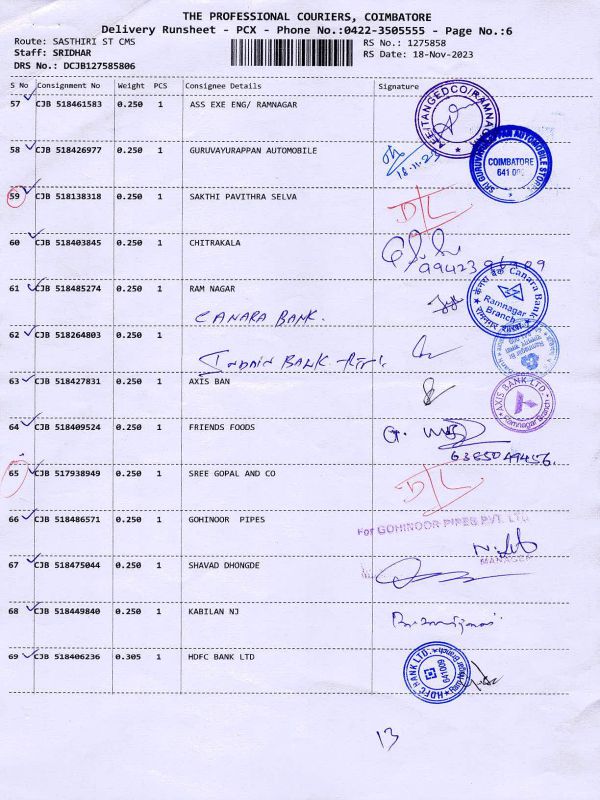 THE PROFESSIONAL COURIERS, COIMBATORE
Delivery Runsheet - PCX - Phone No.:0422-3505555 - Page No.:6
Route: SASTHIRI ST CMS RS No.: 1275858
Staff: SRIDHAR RS Date: 18-Nov-2023
DRS No.: DCJB127585806
S No Consignment No Weight PCS Consignee Details Signature
57 CJB 518461583 0.250 1 ASS EXE ENG/ RAMNAGAR
AEE/TANGEDCO/RAMNAGAR
58 CJB 518426977 0.250 1 GURUVAYURAPPAN AUTOMOBILE
18.11.23
SRI GURUVAYURAPPAN AUTOMOBILE STORES
COIMBATORE
641 009
59 CJB 518138318 0.250 1 SAKTHI PAVITHRA SELVA D/L
60 CJB 518403845 0.250 1 CHITRAKALA
61 CJB 518485274 0.250 1 RAM NAGAR
CANARA BANK.
केनरा बैंक Canara Bank
Ramnagar
Branch
62 CJB 518264803 0.250 1
INDAIN BANK
63 CJB 518427831 0.250 1 AXIS BAN
AXIS BANK LTD.
Ramnagar Branch
64 CJB 518409524 0.250 1 FRIENDS FOODS
65 CJB 517938949 0.250 1 SREE GOPAL AND CO D/L
66 CJB 518486571 0.250 1 GOHINOOR PIPES
For GOHINOOR PIPES PVT. LTD
MANAGER
67 CJB 518475044 0.250 1 SHAVAD DHONGDE
68 CJB 518449840 0.250 1 KABILAN NJ
69 CJB 518406236 0.305 1 HDFC BANK LTD
HDFC BANK LTD.
641009
13